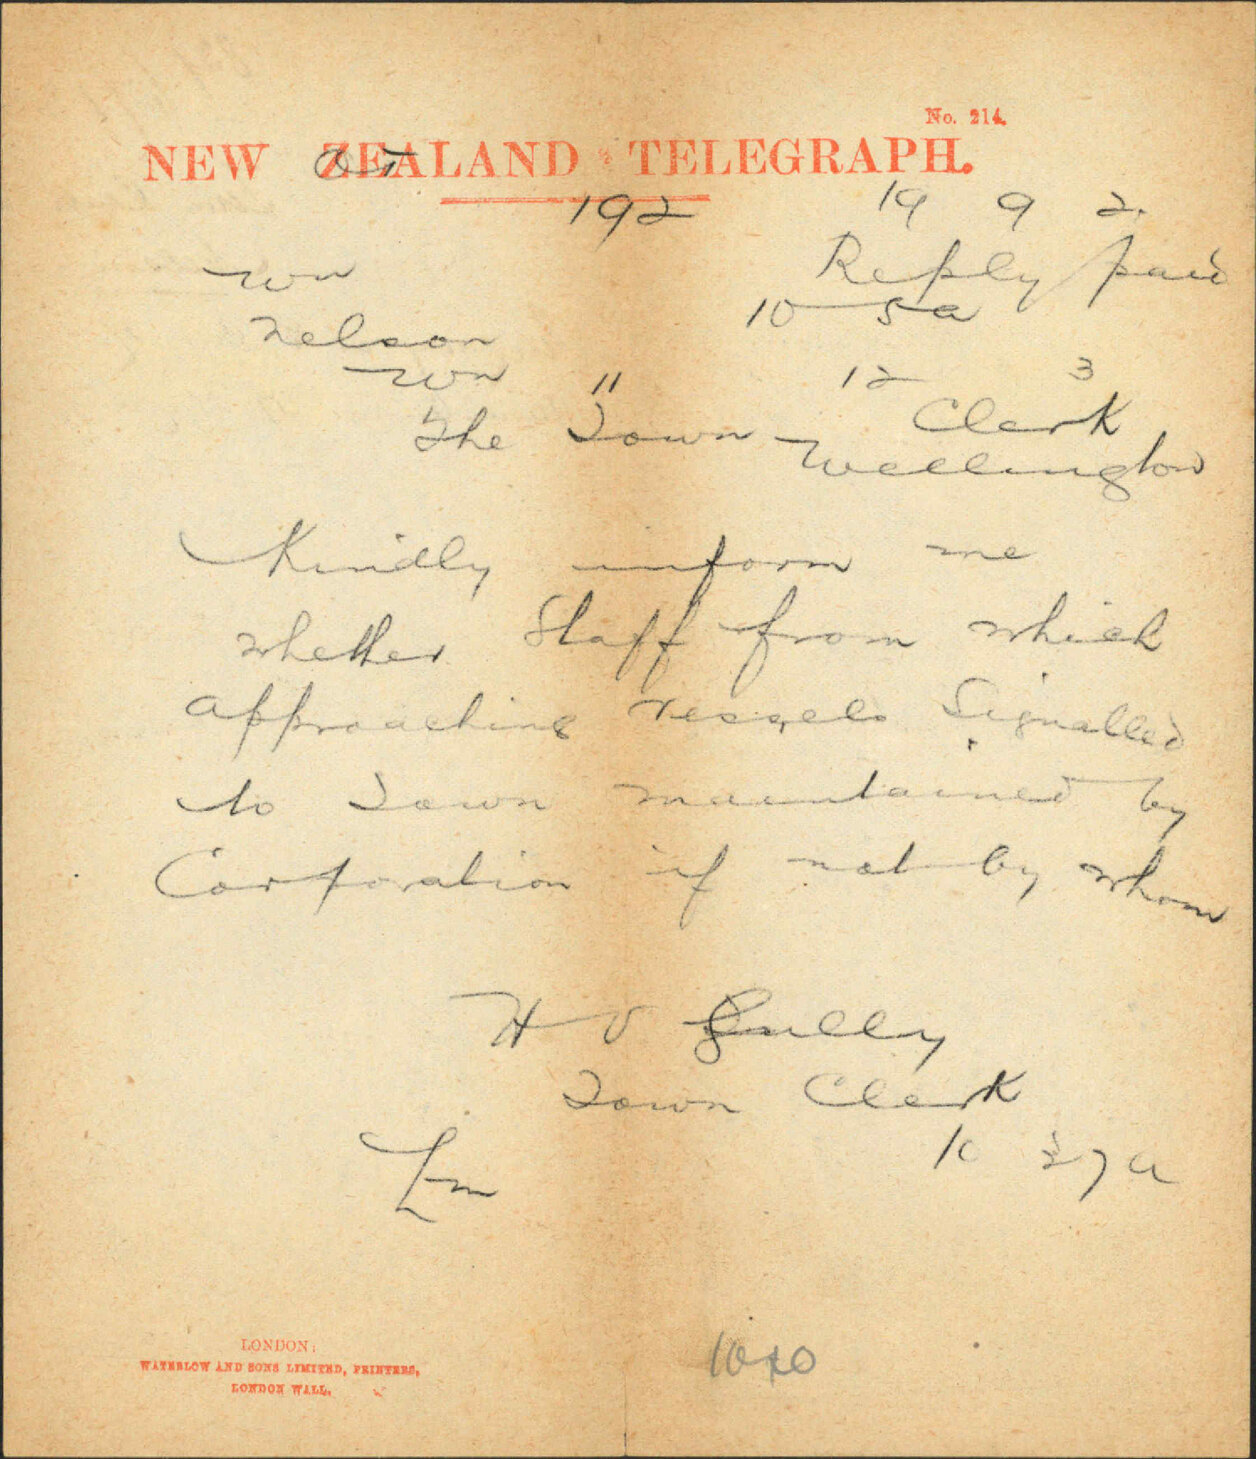 No. 214.
NEW ZEALAND TELEGRAPH.
192 19 9 2.
Wn Reply paid
10 5a
Nelson
Wn 11 12 3
The Town Clerk
Wellington
Kindly inform me
whether Staff from which
approaching vessels Signalled
to Town maintained by
Corporation if not by whom
H V Gully
Town Clerk
10 27a
LONDON:
WATERLOW AND SONS LIMITED, PRINTERS,
LONDON WALL.